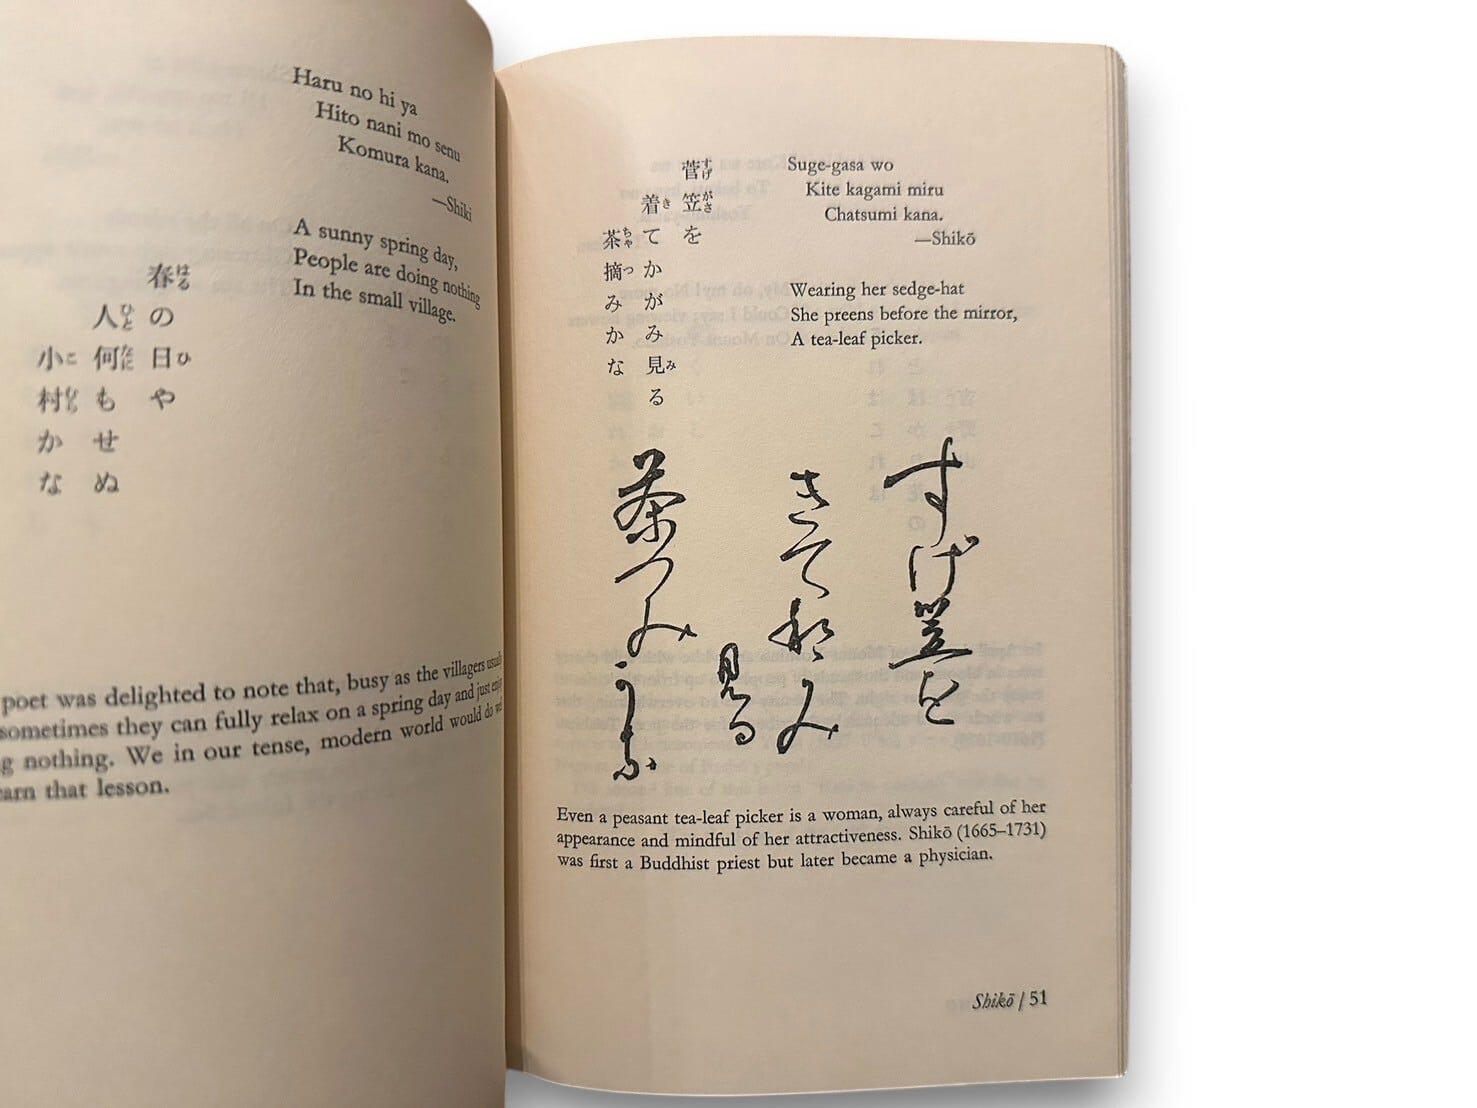 Haru no hi ya
Hito nani mo senu
Komura kana.
—Shiki
A sunny spring day,
People are doing nothing
In the small village.
春の日や
人何もせぬ
小村かな
poet was delighted to note that, busy as the villagers usually
sometimes they can fully relax on a spring day and just enjoy
g nothing. We in our tense, modern world would do well
earn that lesson.
Suge-gasa wo
Kite kagami miru
Chatsumi kana.
—Shikō
菅笠を
着てかがみ見る
茶摘みかな
Wearing her sedge-hat
She preens before the mirror,
A tea-leaf picker.
すげ笠を
きてかゞみ
見る
茶つみかな
Even a peasant tea-leaf picker is a woman, always careful of her
appearance and mindful of her attractiveness. Shikō (1665–1731)
was first a Buddhist priest but later became a physician.
Shikō / 51